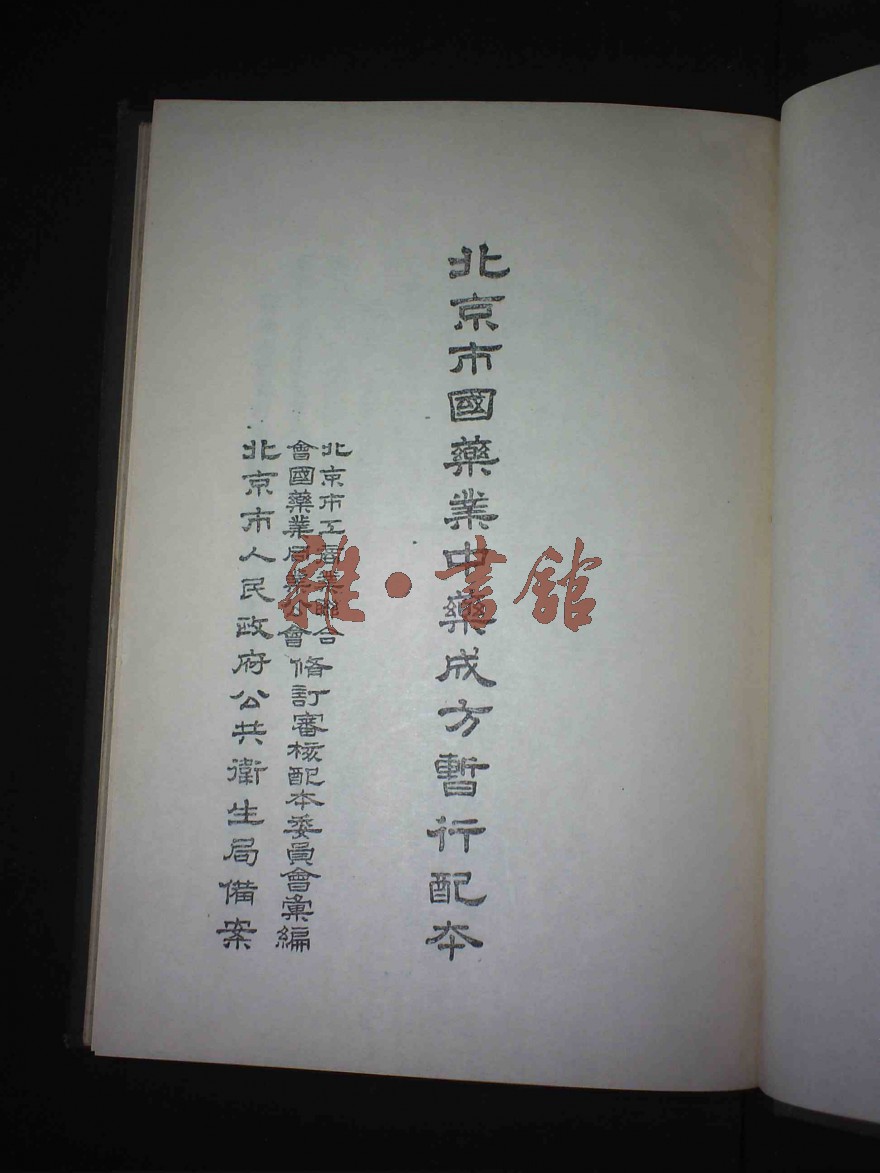 北京市國藥業中藥成方暫行配本
北京市工商業聯合
會國藥業同業公會
修訂審核配本委員會彙編
北京市人民政府公共衛生局備案
雜·書館